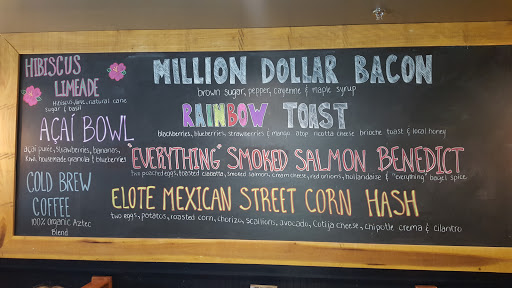 HIBISCUS
LIMEADE
Hibiscus, lime, natural cane
sugar & basil
AÇAÍ BOWL
açaí puree, strawberries, bananas,
kiwi, housemade granola & blueberries
COLD BREW
COFFEE
100% Organic Aztec
Blend
MILLION DOLLAR BACON
brown sugar, pepper, cayenne & maple syrup
RAINBOW TOAST
blackberries, blueberries, strawberries & mango atop ricotta cheese brioche toast & local honey
"EVERYTHING" SMOKED SALMON BENEDICT
two poached eggs, toasted ciabatta, smoked salmon, cream cheese, red onions, hollandaise & "everything" bagel spice
ELOTE MEXICAN STREET CORN HASH
two eggs, potatos, roasted corn, chorizo, scallions, avocado, Cotija cheese, chipotle crema & cilantro